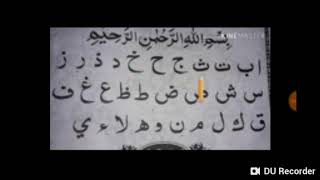 KINEMASTER
بِسْمِ اللهِ الرَّحْمٰنِ الرَّحِيْمِ
ا ب ت ث ج ح خ د ذ ر ز
س ش ص ض ط ظ ع غ ف
ق ك ل م ن و ه لا ء ي
DU Recorder